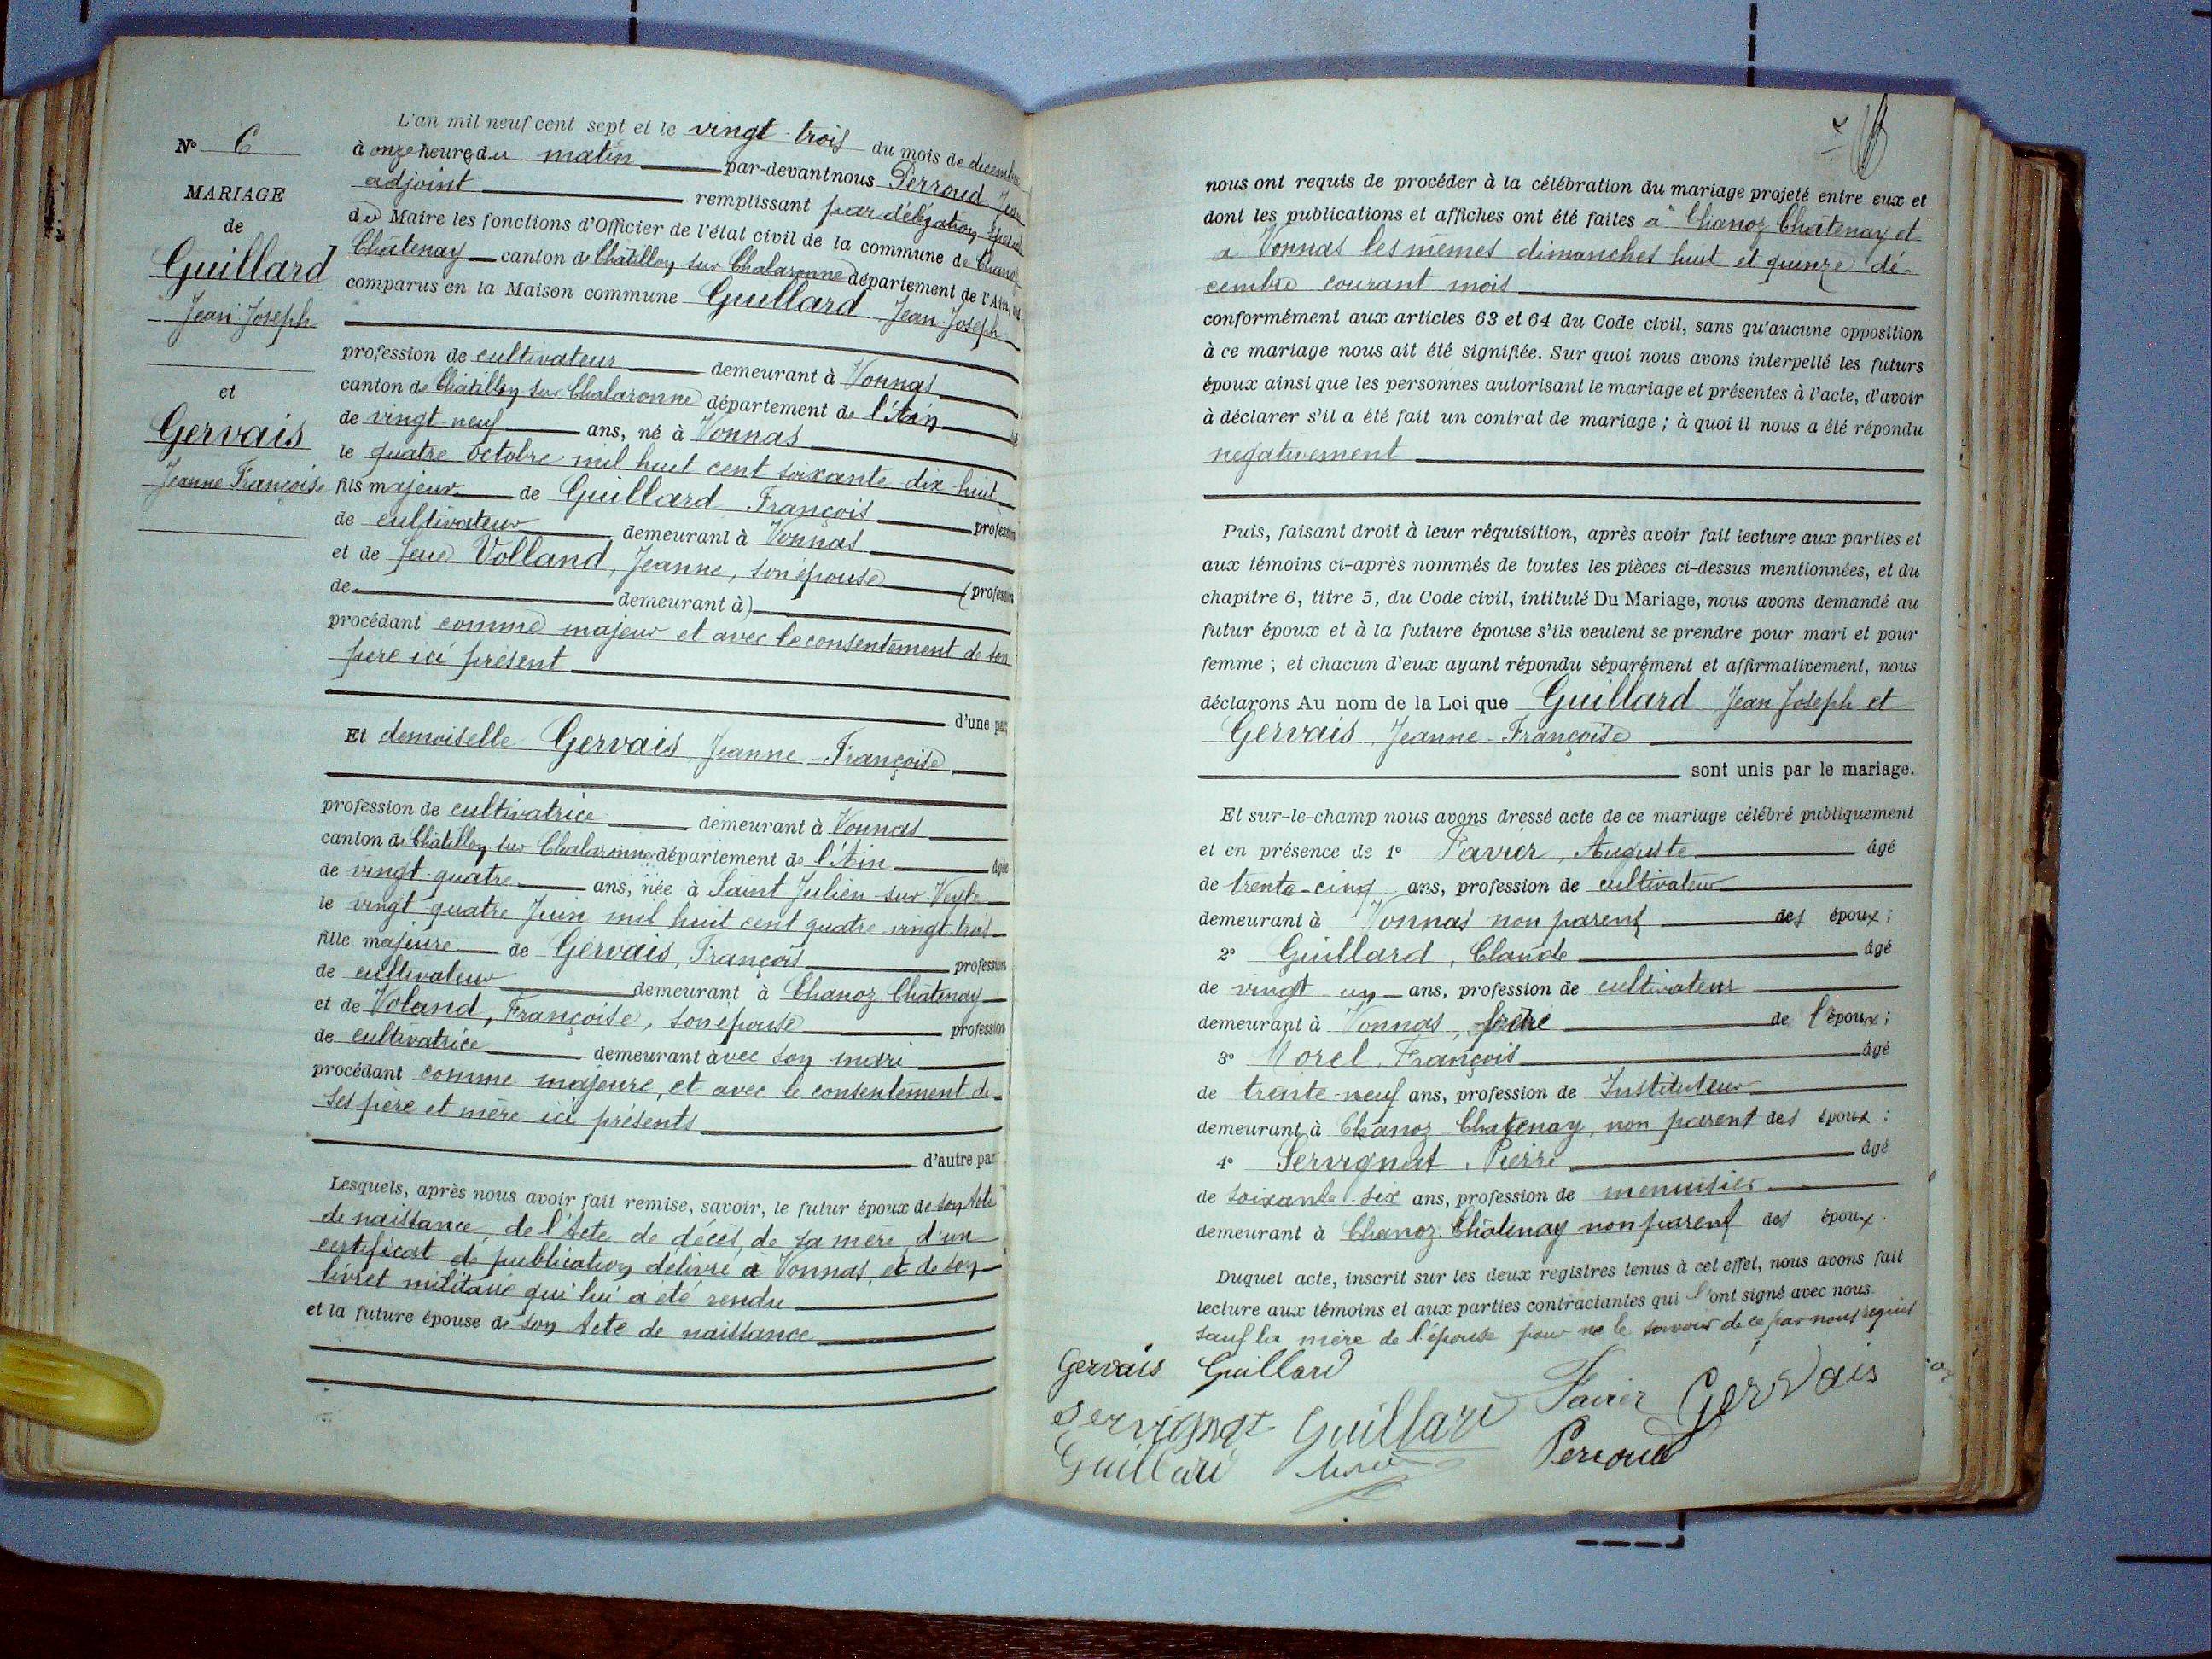 N° 6
MARIAGE
de
Guillard
Jean Joseph
et
Gervais
Jeanne Françoise
L'an mil neuf cent sept et le vingt-trois du mois de décembre
à onze heures du matin par-devant nous Perroud Jean
adjoint remplissant par délégation
du Maire les fonctions d'Officier de l'état civil de la commune de Chanoz
Châtenay canton de Châtillon sur Chalaronne département de l'Ain,
comparus en la Maison commune Guillard Jean Joseph
profession de cultivateur demeurant à Vonnas
canton de Châtillon sur Chalaronne département de l'Ain
de vingt neuf ans, né à Vonnas
le quatre octobre mil huit cent soixante dix-huit
fils majeur de Guillard François profession
de cultivateur demeurant à Vonnas
et de feue Volland, Jeanne, son épouse (profession
de demeurant à)
procédant comme majeur et avec le consentement de son
père ici présent
d'une par
Et demoiselle Gervais Jeanne Françoise
profession de cultivatrice demeurant à Vonnas
canton de Châtillon sur Chalaronne département de l'Ain âgée
de vingt-quatre ans, née à Saint Julien sur Veyle
le vingt quatre Juin mil huit cent quatre vingt trois
fille majeure de Gervais, François profession
de cultivateur demeurant à Chanoz Châtenay
et de Voland, Françoise, son épouse profession
de cultivatrice demeurant avec son mari
procédant comme majeure, et avec le consentement de
ses père et mère ici présents
d'autre par
Lesquels, après nous avoir fait remise, savoir, le futur époux de son Acte
de naissance, de l'Acte de décès de sa mère, d'un
certificat de publication délivré à Vonnas, et de son
livret militaire qui lui a été rendu
et la future épouse de son Acte de naissance
nous ont requis de procéder à la célébration du mariage projeté entre eux et
dont les publications et affiches ont été faites à Chanoz Châtenay et
à Vonnas les mêmes dimanches huit et quinze dé-
cembre courant mois
conformément aux articles 63 et 64 du Code civil, sans qu'aucune opposition
à ce mariage nous ait été signifiée. Sur quoi nous avons interpellé les futurs
époux ainsi que les personnes autorisant le mariage et présentes à l'acte, d'avoir
à déclarer s'il a été fait un contrat de mariage ; à quoi il nous a été répondu
négativement
Puis, faisant droit à leur réquisition, après avoir fait lecture aux parties et
aux témoins ci-après nommés de toutes les pièces ci-dessus mentionnées, et du
chapitre 6, titre 5, du Code civil, intitulé Du Mariage, nous avons demandé au
futur époux et à la future épouse s'ils veulent se prendre pour mari et pour
femme ; et chacun d'eux ayant répondu séparément et affirmativement, nous
déclarons Au nom de la Loi que Guillard Jean Joseph et
Gervais Jeanne-Françoise
sont unis par le mariage.
Et sur-le-champ nous avons dressé acte de ce mariage célébré publiquement
et en présence de 1° Favier, Auguste âgé
de trente-cinq ans, profession de cultivateur
demeurant à Vonnas non parent des époux ;
2° Guillard, Claude âgé
de vingt un ans, profession de cultivateur
demeurant à Vonnas, frère de l'époux ;
3° Morel, François âgé
de trente-neuf ans, profession de Instituteur
demeurant à Chanoz Chatenay, non parent des époux :
4° Servignat, Pierre âgé
de soixante-six ans, profession de menuisier
demeurant à Chanoz Châtenay non parent des époux.
Duquel acte, inscrit sur les deux registres tenus à cet effet, nous avons fait
lecture aux témoins et aux parties contractantes qui l'ont signé avec nous
sauf la mère de l'épouse pour ne le savoir de ce par nous requis
Gervais Guillard
Favier Gervais
Servignat Guillard
Perroud
Guillard Morel